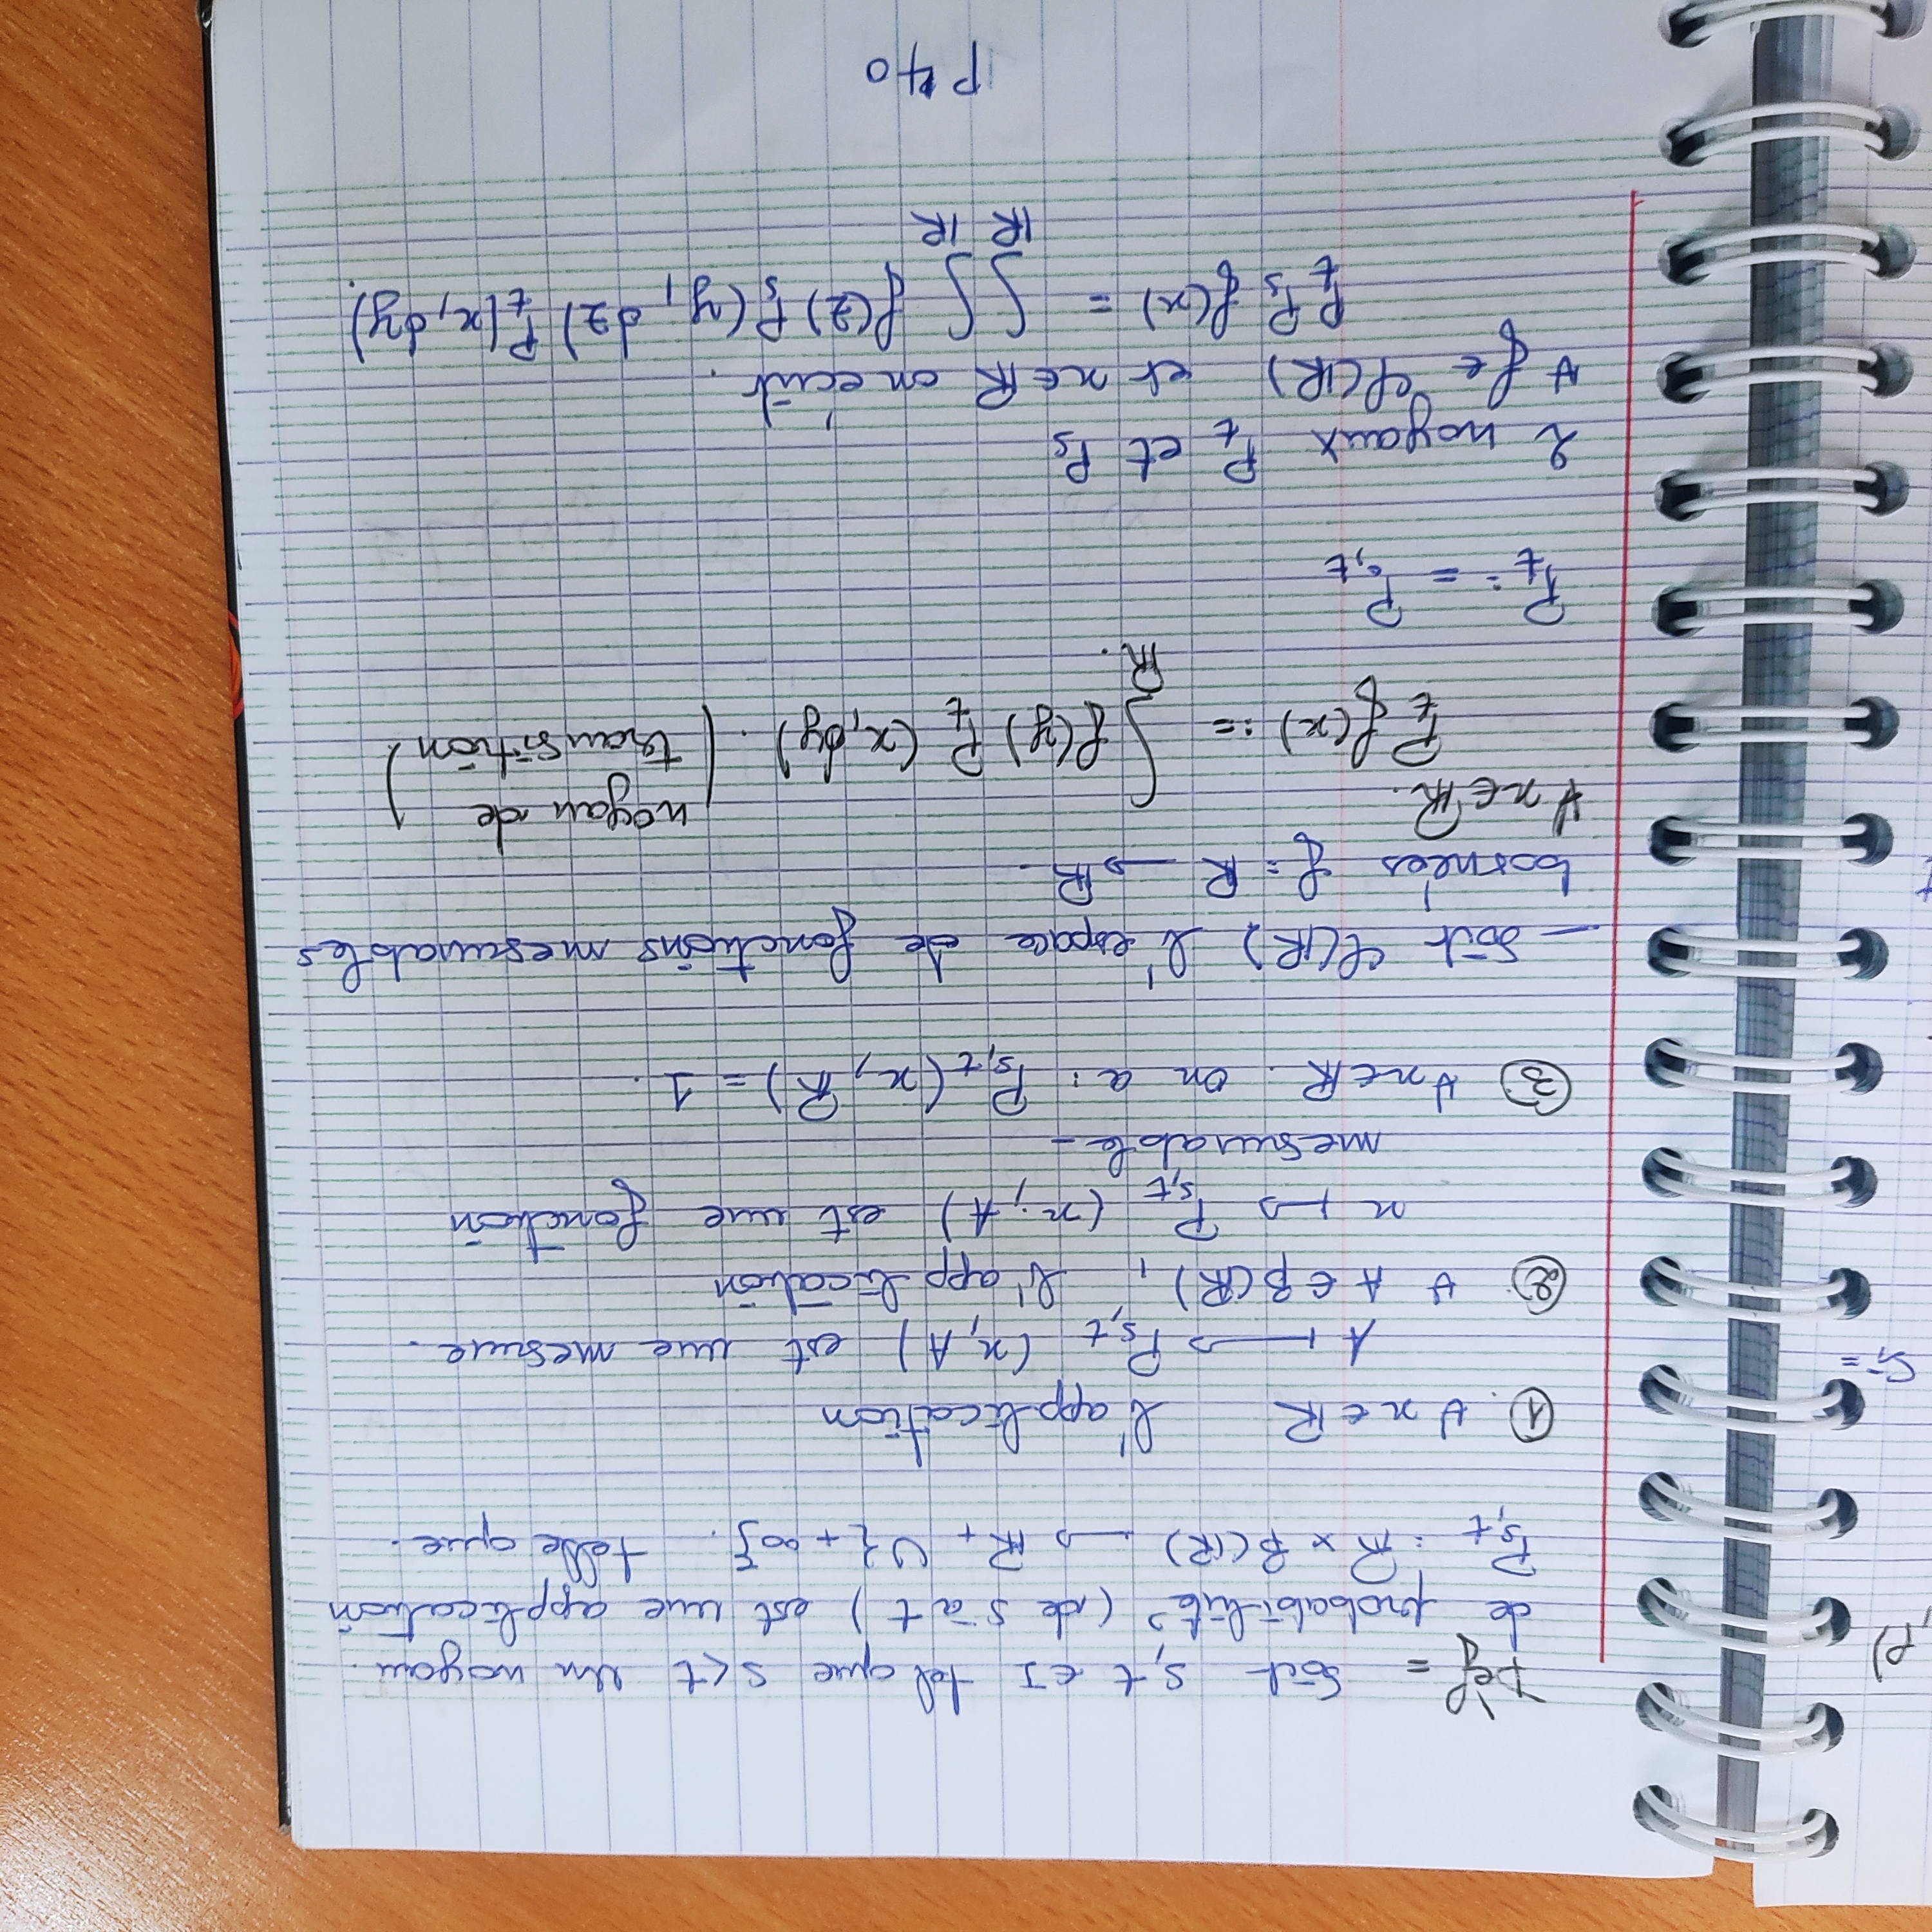 ,P)
Si =
Dèf = Soit s,t ∈ I tel que s<t Un noyau.
de probabilité (de s à t) est une application
P_{s,t} : ℝ × β(ℝ) → ℝ₊ ∪ {+∞}. telle que.
① ∀ x ∈ ℝ l'application
A ↦ P_{s,t} (x, A) est une mesure.
② ∀ A ∈ β(ℝ), l'application
x ↦ P_{s,t} (x; A) est une fonction
mesurable -
③ ∀x∈ℝ. on a: P_{s,t}(x, ℝ) = 1.
- Soit φ(ℝ) l'espace de fonctions mesurables
bornées f: ℝ → ℝ.
∀ x∈ℝ.
P_t f(x) := ∫_ℝ f(y) P_t (x, dy). (noyau de
transition)
P_t := P_{0,t}
2 noyaux P_t et P_s
∀ f ∈ φ(ℝ) et x∈ℝ on écrit.
P_t P_s f(x) = ∫_ℝ ∫_ℝ f(z) P_s(y, dz) P_t(x, dy).
P 40